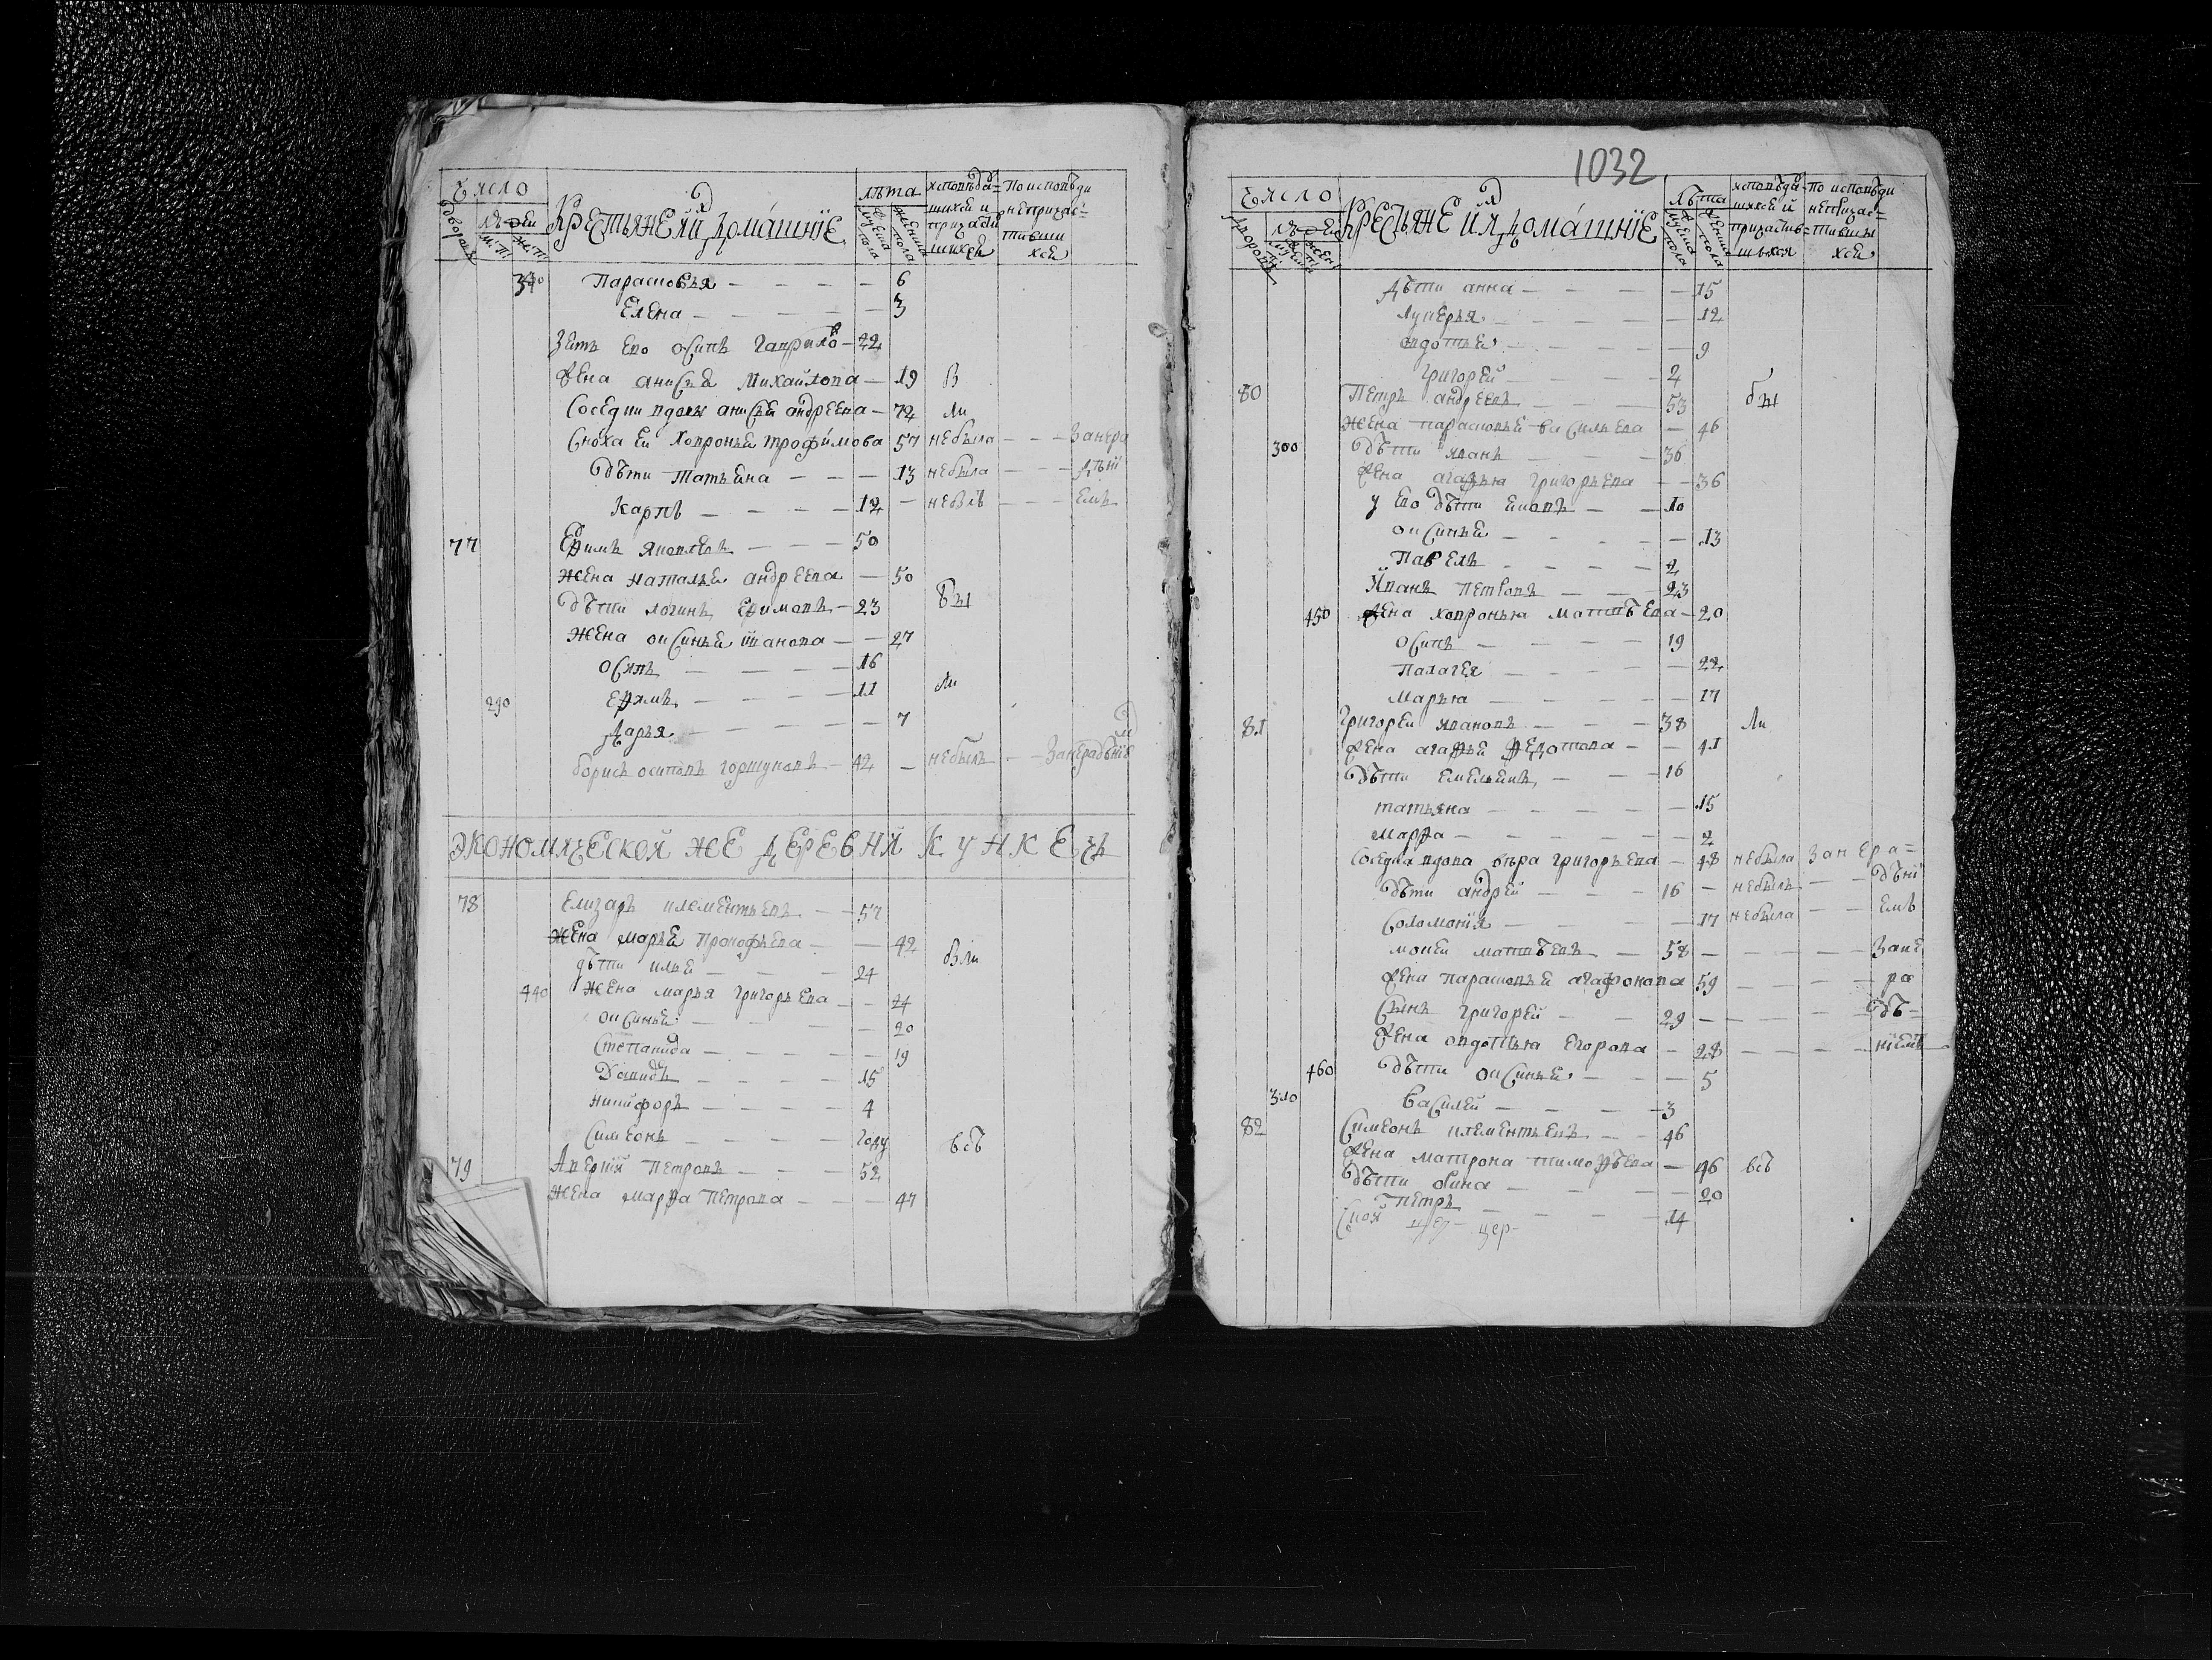 Число
Крестьяне й ихъ домашнїе
лѣта
исповѣдав=
шихся и
причасти
шихся
По исповѣди
непричас=
тивши
хся
дворовъ
людей
м: п
ж: п
мужеска
пола
женска
пола
Парасковья — — — 6
Елена — — — 3
Зять ево Осипъ Гаврило — 22
Жена анисья Михайлова — 19 В
Соседни вдовы анисья андреева — 72 ли
Сноха ей Ховронья трофимова 57 небыла — — Занера
дѣти Татьяна — — — 13 небыла — — дѣнї
Карпъ — — — 12 — небылъ — — емъ
77 Ефимъ яковлевъ — — — 50
Жена наталья андреева — 50
дѣти логинъ Ефимовъ — 23 бы
Жена оксинья иванова — — 27
Осипъ — — — 16
Ефимъ — — — 11 ли
290 Дарья — — — 7
борисъ осиповъ горшуновъ — 42 — небылъ — Занерадѣнїе
Экономической же деревни Кункецъ
78 Елизаръ клементьевъ — — 57
Жена марья Прокофьева — — 42
дѣти илья — — — 24 были
440 Жена марья григорьева — — 24
оксинья — — — 20
Степанида — — — 19
Давидъ — — — 15
никифоръ — — — 4
Симеонъ — — — году всѣ
79 Аверкїй Петровъ — — — 52
Жена марфа Петрова — — — 47
1032
Число
Крестьяне й ихъ домашнїе
лѣта
исповѣдав=
шихся й
причастив=
шихся
По исповѣди
непричас=
тившы
хся
дворовъ
людей
мужеска
пола
женска
пола
Дѣти анна — — — 15
лукерья — — — 12
овдотья — — — 9
григорей — — — 2
80 Петръ андреевъ — — 53 бы
Жена парасковья васильева — 46
300 дѣти иванъ — — — 36
Жена агафья григорьева — — 36
у ево дѣти яковъ — — 10
оксинья — — — 13
Павелъ — — — 2
Иванъ петровъ — — 23
450 Жена ховронья матвѣева — 20
Осипъ — — — 19
Палагея — — — 22
марья — — — 17
81 григорей ивановъ — — — 38 ли
Жена агафья федотова — — 41
дѣти емельянъ — — 16
татьяна — — — 15
марфа — — — 2
соседка вдова вѣра григорьева — 48 небыла Занера=
дѣти андрей — — — 16 — небылъ — — дѣнї
Соломонїя — — — 17 небыла — — емъ
мокей матвѣевъ — — 58 — — — Зане
Жена парасковья агафонова 59 — — — ра
Сынъ григорей — — 29 — — — дѣ=
Жена овдотья егорова — 28 — — — нїемъ
460 дѣти оксинья — — — 5
310 Василей — — — 3
82 Симеонъ клементьевъ — — 46
Жена матрона тимофѣева — 46 всѣ
дѣти — — — 20
Петръ — — — 14